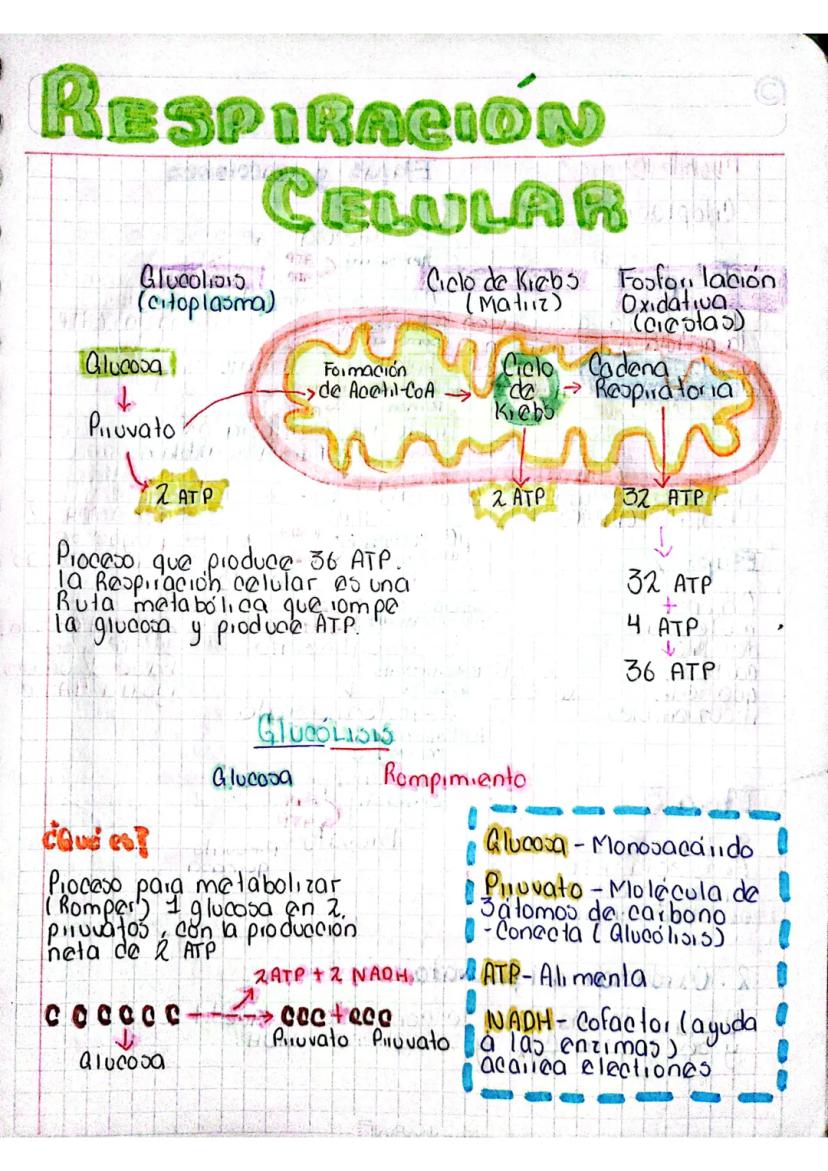 RESPIRACIÓN
CELULAR
Glucolisis
(citoplasma)
Ciclo de Krebs
(Matriz)
Fosforilación
Oxidativa
(crestas)
Glucosa
Piruvato
2 ATP
Formación
de Acetil-CoA
Ciclo
de
Krebs
Cadena
Respiratoria
2 ATP
32 ATP
Proceso que produce 36 ATP.
la Respiración celular es una
Ruta metabólica que rompe
la glucosa y produce ATP.
32 ATP
+
4 ATP
36 ATP
GLUCÓLISIS
Glucosa
Rompimiento
¿Qué es?
Proceso para metabolizar
(Romper) 1 glucosa en 2
piruvatos, con la producción
neta de 2 ATP
2ATP + 2 NADH
C C C C C C
CCC + CCC
Piruvato Piruvato
Glucosa
Glucosa - Monosacárido
Piruvato - Molécula de
3 átomos de carbono
- Conecta (Glucólisis)
ATP - Alimenta
NADH - Cofactor (ayuda
a las enzimas)
acarrea electrones